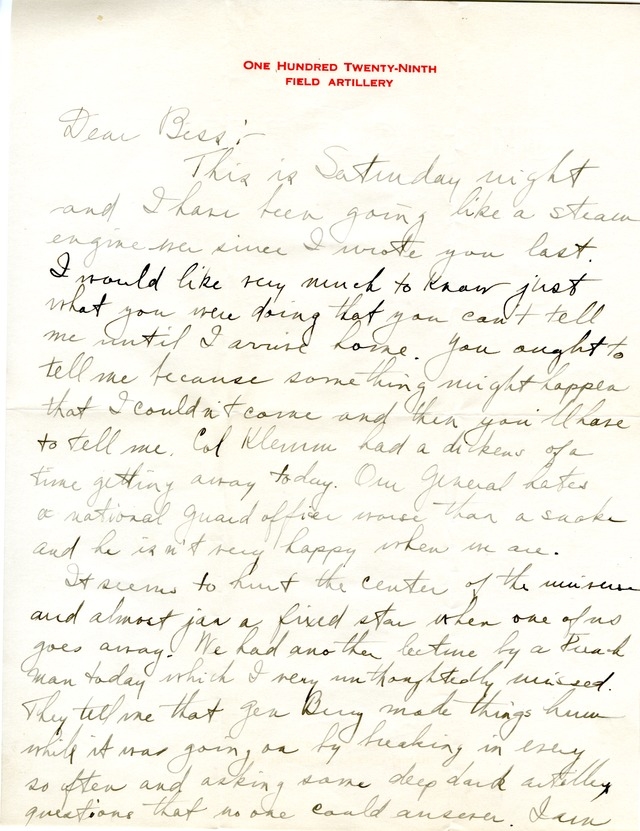 ONE HUNDRED TWENTY-NINTH
FIELD ARTILLERY
Dear Bess:-
This is Saturday night
and I have been going like a steam
engine ever since I wrote you last.
I would like very much to know just
what you were doing that you can't tell
me until I arrive home. You ought to
tell me because something might happen
that I couldn't come and then you'll have
to tell me. Col Klemm had a dickens of a
time getting away today. Our General hates
a national guard officer worse than a snake
and he isn't very happy when we are.
It seems to hurt the center of the universe
and almost jar a fixed star when one of us
goes away. We had another lecture by a French
man today which I very unthoughtedly missed.
They tell me that Gen Berry made things hum
while it was going on by breaking in every
so often and asking some deep dark artillery
questions that no one could answer. I am